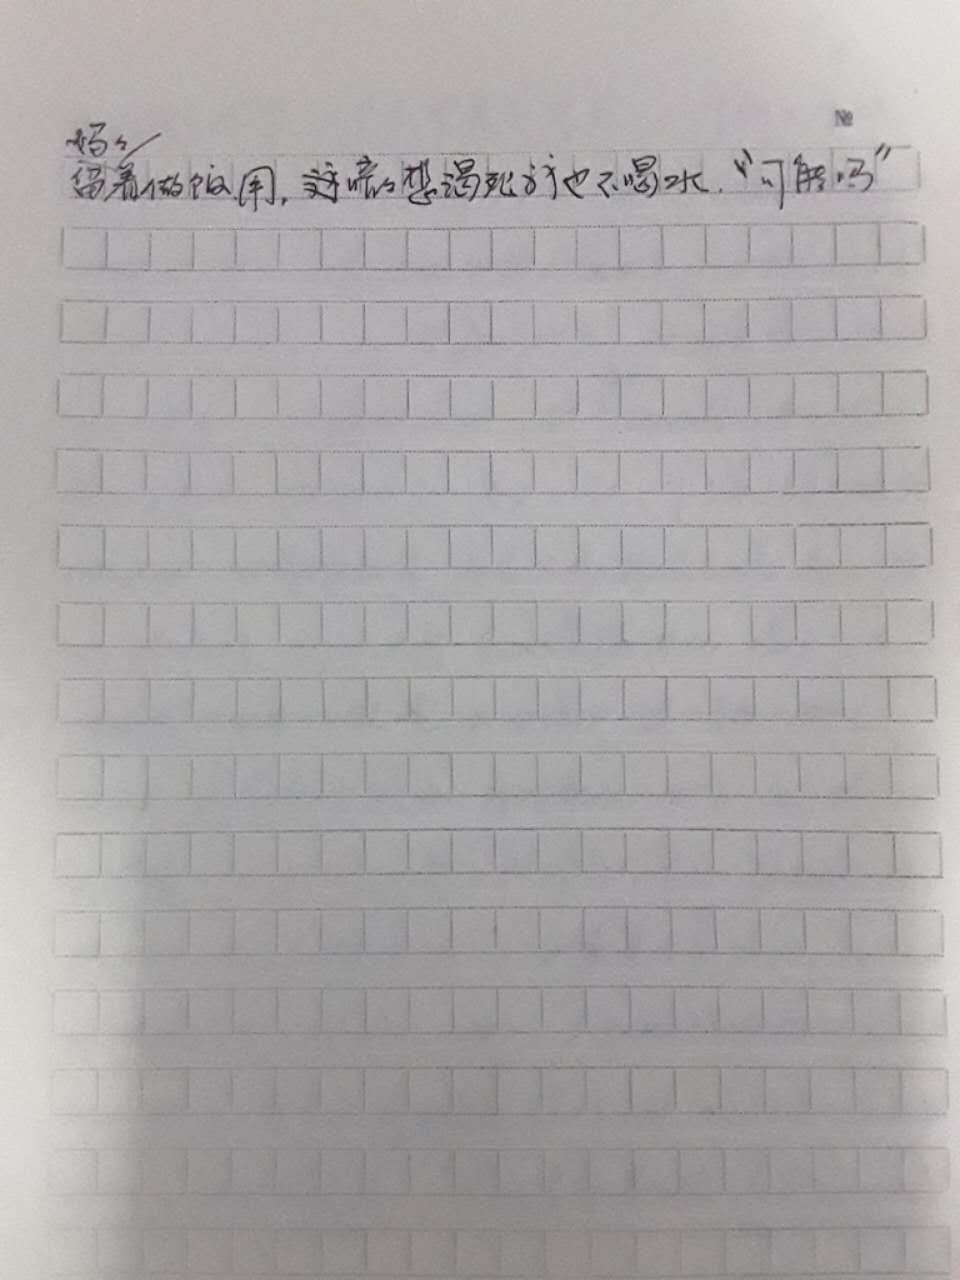 №
妈々
留着做饭用，这嘛々想渴死方也不喝水．“可能吗”